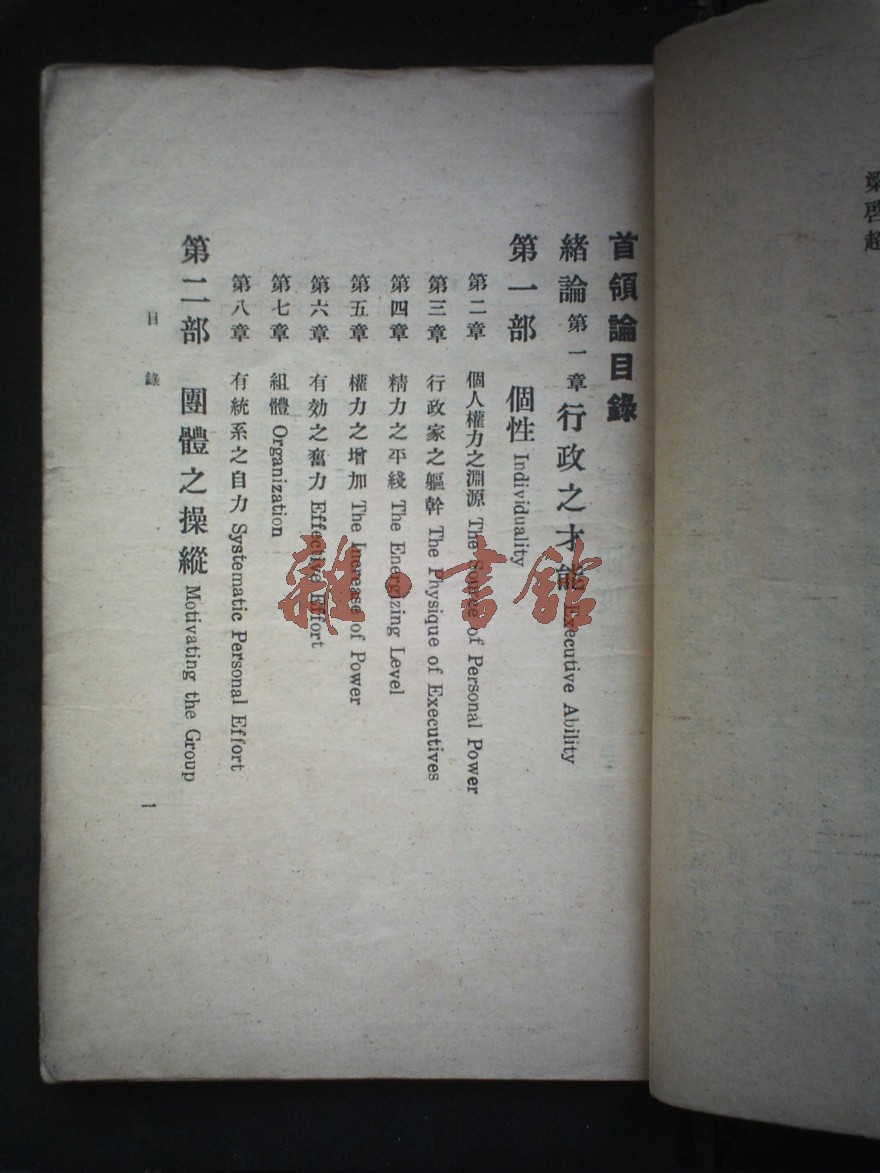 梁啓超
首領論目錄
緒論 第一章 行政之才能 Executive Ability
第一部 個性 Individuality
第二章 個人權力之淵源 The Source of Personal Power
第三章 行政家之軀幹 The Physique of Executives
第四章 精力之平綫 The Energizing Level
第五章 權力之增加 The Increase of Power
第六章 有効之奮力 Effective Effort
第七章 組體 Organization
第八章 有統系之自力 Systematic Personal Effort
第二部 團體之操縱 Motivating the Group
目錄
1
雜·書館